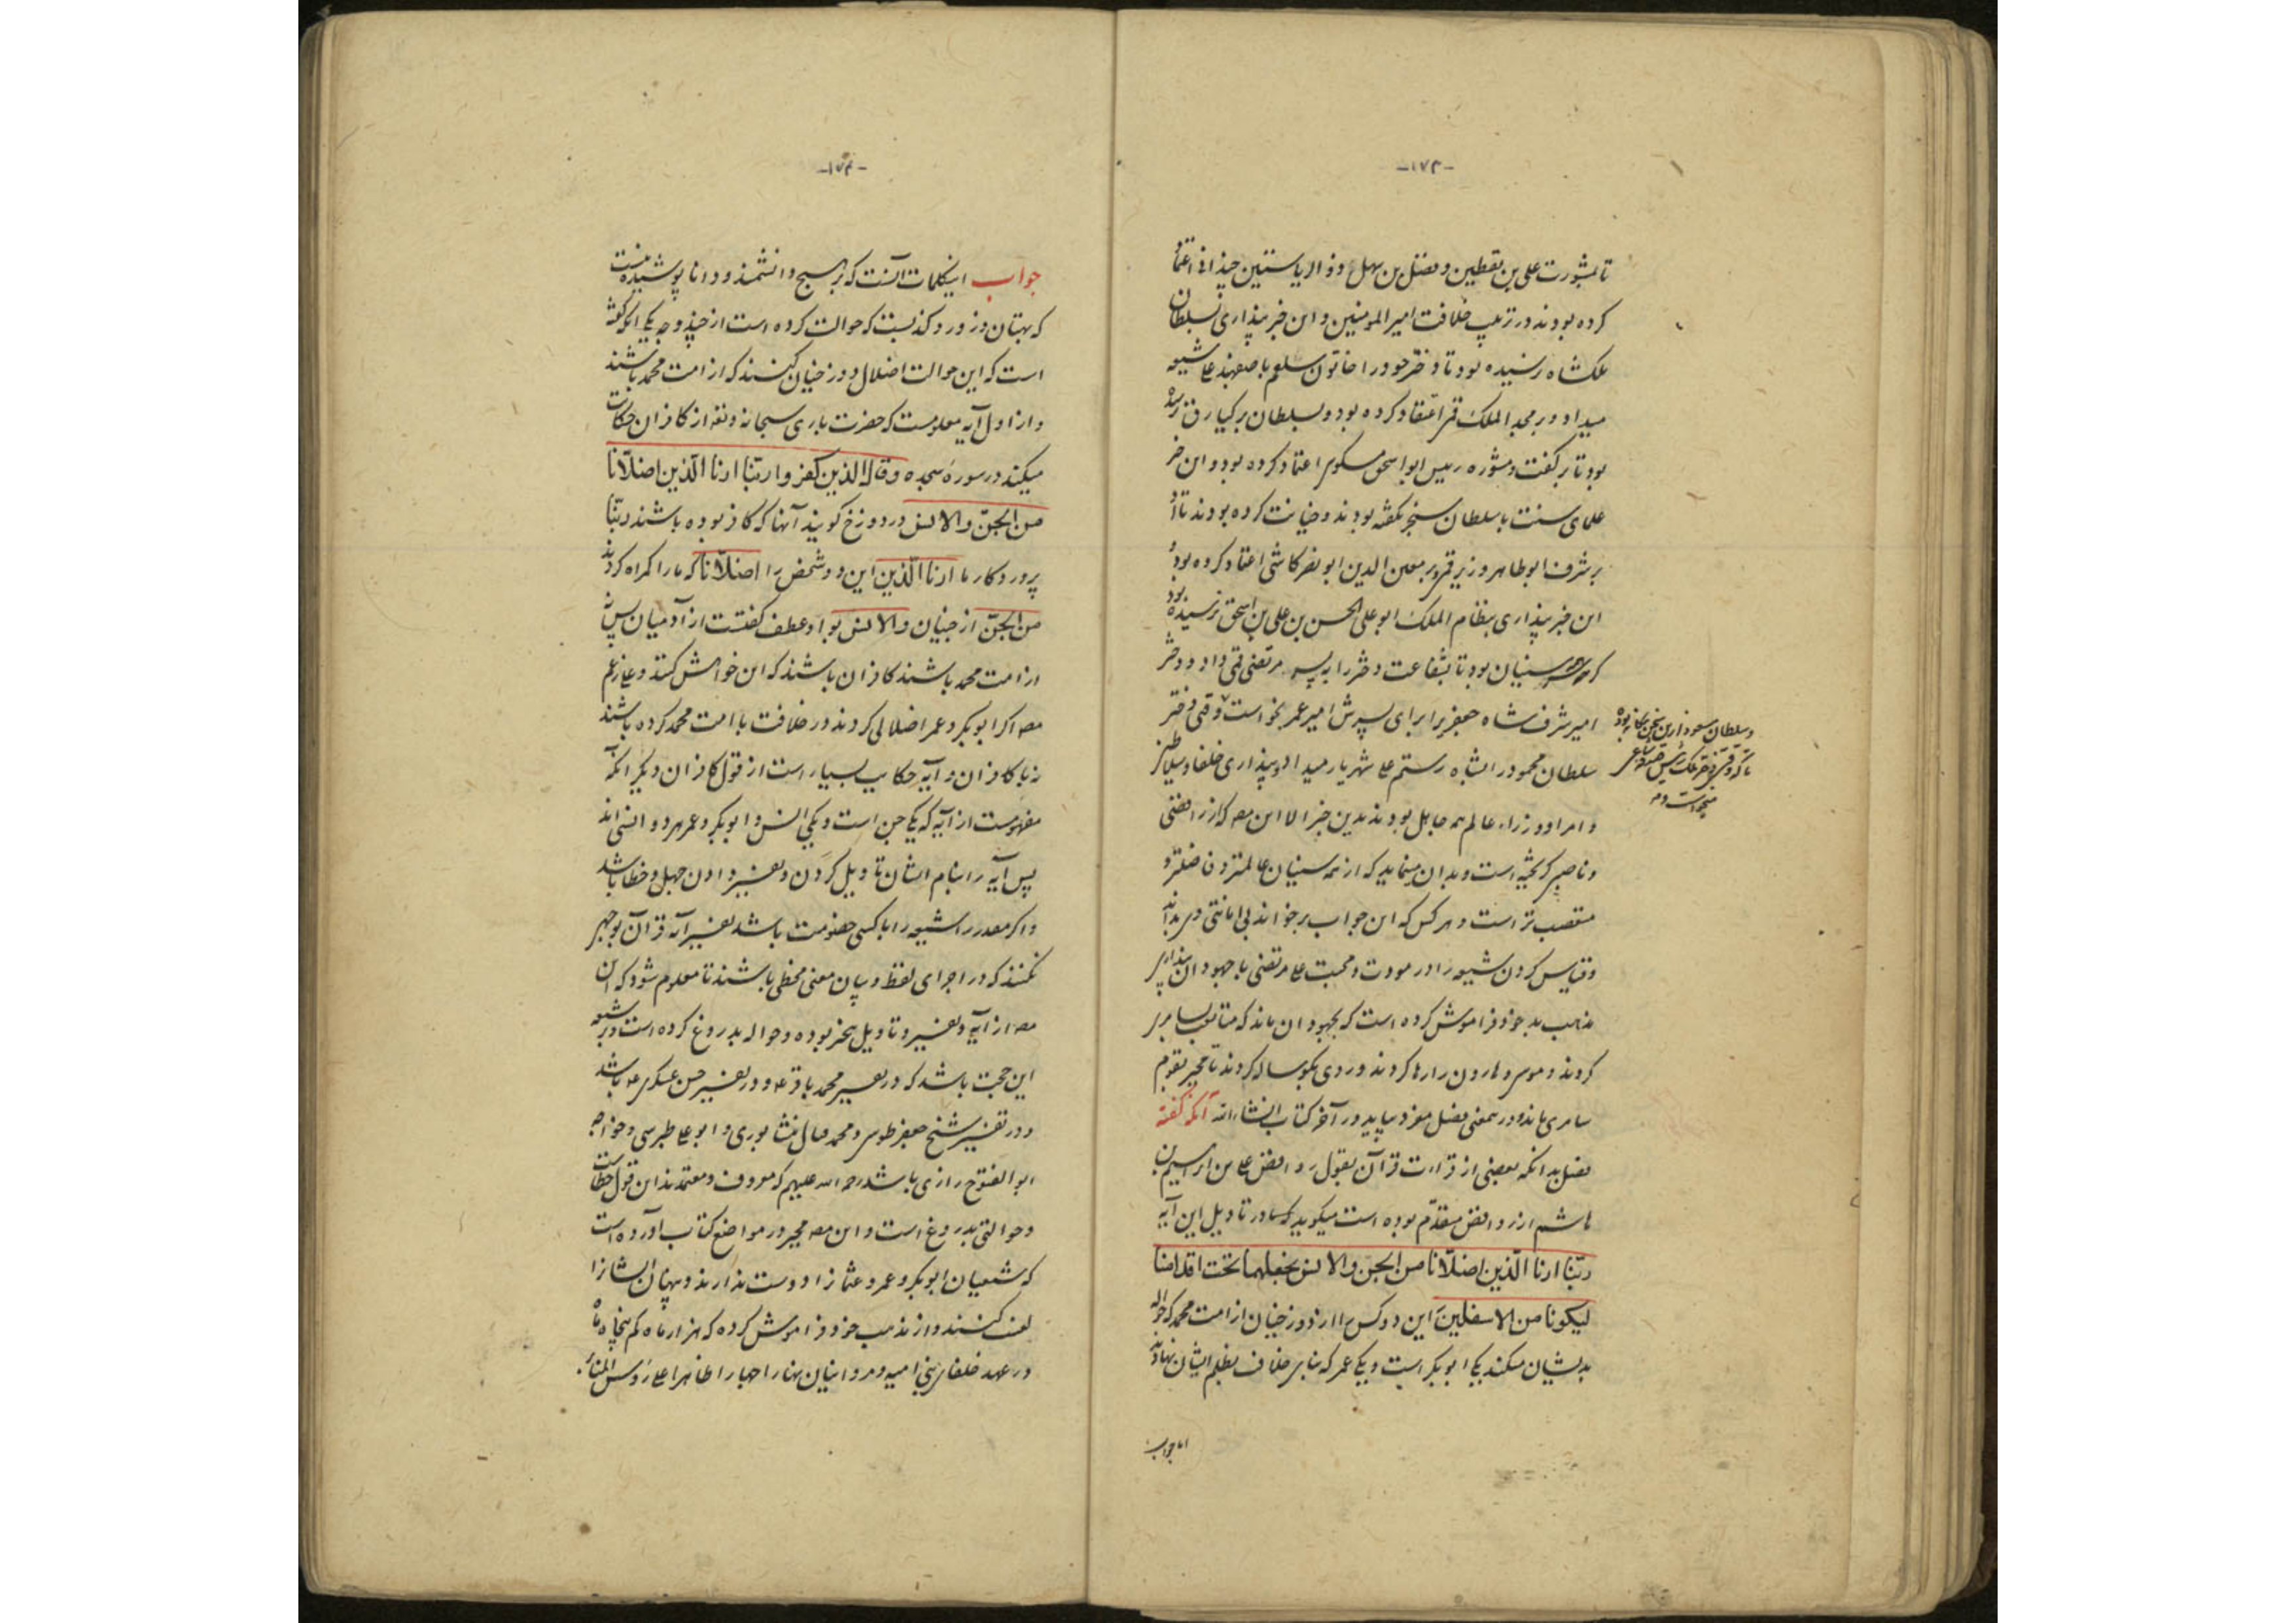 -۱۷۳-
تا بمشورت علی بن یقطین و فضل بن سهل ذو الریاستین چندانی اعتماد
کرده بودند در ترتیب خلافت امیر المومنین و این خبر پنداری بسلطان
ملکشاه نرسیده بود تا دختر خود را خاتون سلقم باصفهبد علی شیعه
میداد و بر مجد الملک قمی اعتقاد کرده بود و بسلطان برکیارق نرسیده
بود تا بر گفت و مشوره رییس ابو اسحق اعتماد کرده بود و این خبر
علمای سنت با سلطان سنجر نگفته بودند و خیانت کرده بودند تا او
بر شرف ابو طاهر وزیر قمی و بر معین الدین ابو نصر کاشی اعتماد کرده بود و
این خبر پنداری بنظام الملک ابو علی الحسن بن علی بن اسحق نرسیده بود
که سنیان بود تا بشفاعت دختر را به پسر مرتضی قمی داد و دختر
امیر شرفشاه جعفری را برای پسرش امیر عمر بخواست وقتی دختر
و سلطان مسعود ازین سخن بیگانه بوده
میخواست و
سلطان محمود را بشاه رستم علی شهریار میداد و پنداری خلفا و سلاطین
و امرا و وزراء عالم همه جاهل بودند بدین خبر الا این مصنف که از رافضی
و ناصبی گریخته است و بدان مینماید که از همه سنیان عالمتر و فاضلتر و
متعصب تر است و هر کس که این جواب بر خواند بی امانتی وی بداند
و قیاس کردن شیعه را در مودت و محبت علی مرتضی با جهودان پنداری
مذهب بد خود فراموش کرده است که بجهودان ماند که متابعت سامری
کردند و موسی و هارون را رها کردند و روی بگوساله کردند تا مجبر بقوم
سامری ماند و درین معنی فصل مفرد بیاید در آخر کتاب انشاء الله آنکه گفته
فضل بدانکه بعضی از قراءت قرآن بقول روافض علی بن ابراهیم بن
هاشم از روافض متقدم بوده است میگوید که در تاویل این آیه
ربّنا ارنا الّذین اضلّانا من الجن والانس نجعلهما تحت اقدامنا
لیکونا من الاسفلین این دو کس را از دوزخیان از امت محمد که حواله
بدیشان میکند یکی ابو بکر است و یکی عمر که بنای خلاف بظلم ایشان نهادند
اما جواب
-۱۷۴-
جواب اینکلمات آنست که بر هیچ دانشمند و دانا پوشیده نیست
که بهتان و زور و کذبست که حوالت کرده است از چند وجه یکی آنکه گفته
است که این حوالت اضلال دوزخیان کنند که از امت محمد باشند
و از اول آیه معلومست که حضرت باری سبحانه و تعالی از کافران حکایت
میکند در سوره سجده وقال الذین کفروا ربّنا ارنا الّذین اضلّانا
من الجنّ والانس در دوزخ گویند آنها که کافر بوده باشند ربّنا
پروردگار ما ارنا الّذین این دو شخص را اضلّانا که ما را گمراه کردند
من الجنّ از جنیان والانس بواو عطف گفتست از آدمیان پس نه
از امت محمد باشند کافران باشند که این خواهش کنند و علی زعم
مصنف اگر ابو بکر و عمر اضلالی کردند در خلافت با امت محمد کرده باشند
نه با کافران و آیه حکایت بسیار است از قول کافران دیگر آنکه
مفهومست از آیه که یکی جن است و یکی انس و ابو بکر و عمر هر دو انسی اند
پس آیه را بنام ایشان تاویل کردن و تفسیر دادن جهل و خطا باشد
و اگر مصدر را شیعه را با کسی خصومت باشد تفسیر آیه قرآن بوجهی
نکنند که در اجرای لفظ و بیان معنی مخطی باشند تا معلوم شود که این
مصنف از آیه و تفسیر و تاویل بیخبر بوده و حواله بدروغ کرده است و بر شیعه
این حجت باشد که در تفسیر محمد باقر ع و در تفسیر حسن عسکری ع باشد
و در تفسیر شیخ جعفر طوسی و محمد فتال نیشابوری و ابو علی طبرسی و خواجه
ابو الفتوح رازی باشد رحمة الله علیهم که معروف و معتمدند این قول خطاست
و حوالتی بدروغ است و این مصنف مجبر در مواضع کتاب آورده است
که شیعیان ابو بکر و عمر و عثمان را دوست ندارند و پنهان ایشانرا
لعنت کنند و از مذهب خود فراموش کرده که هزار ماه کم پنجاه ماه
در عهد خلفای بنی امیه و مروانیان نهارا جهارا ظاهرا علی رؤس المنابر